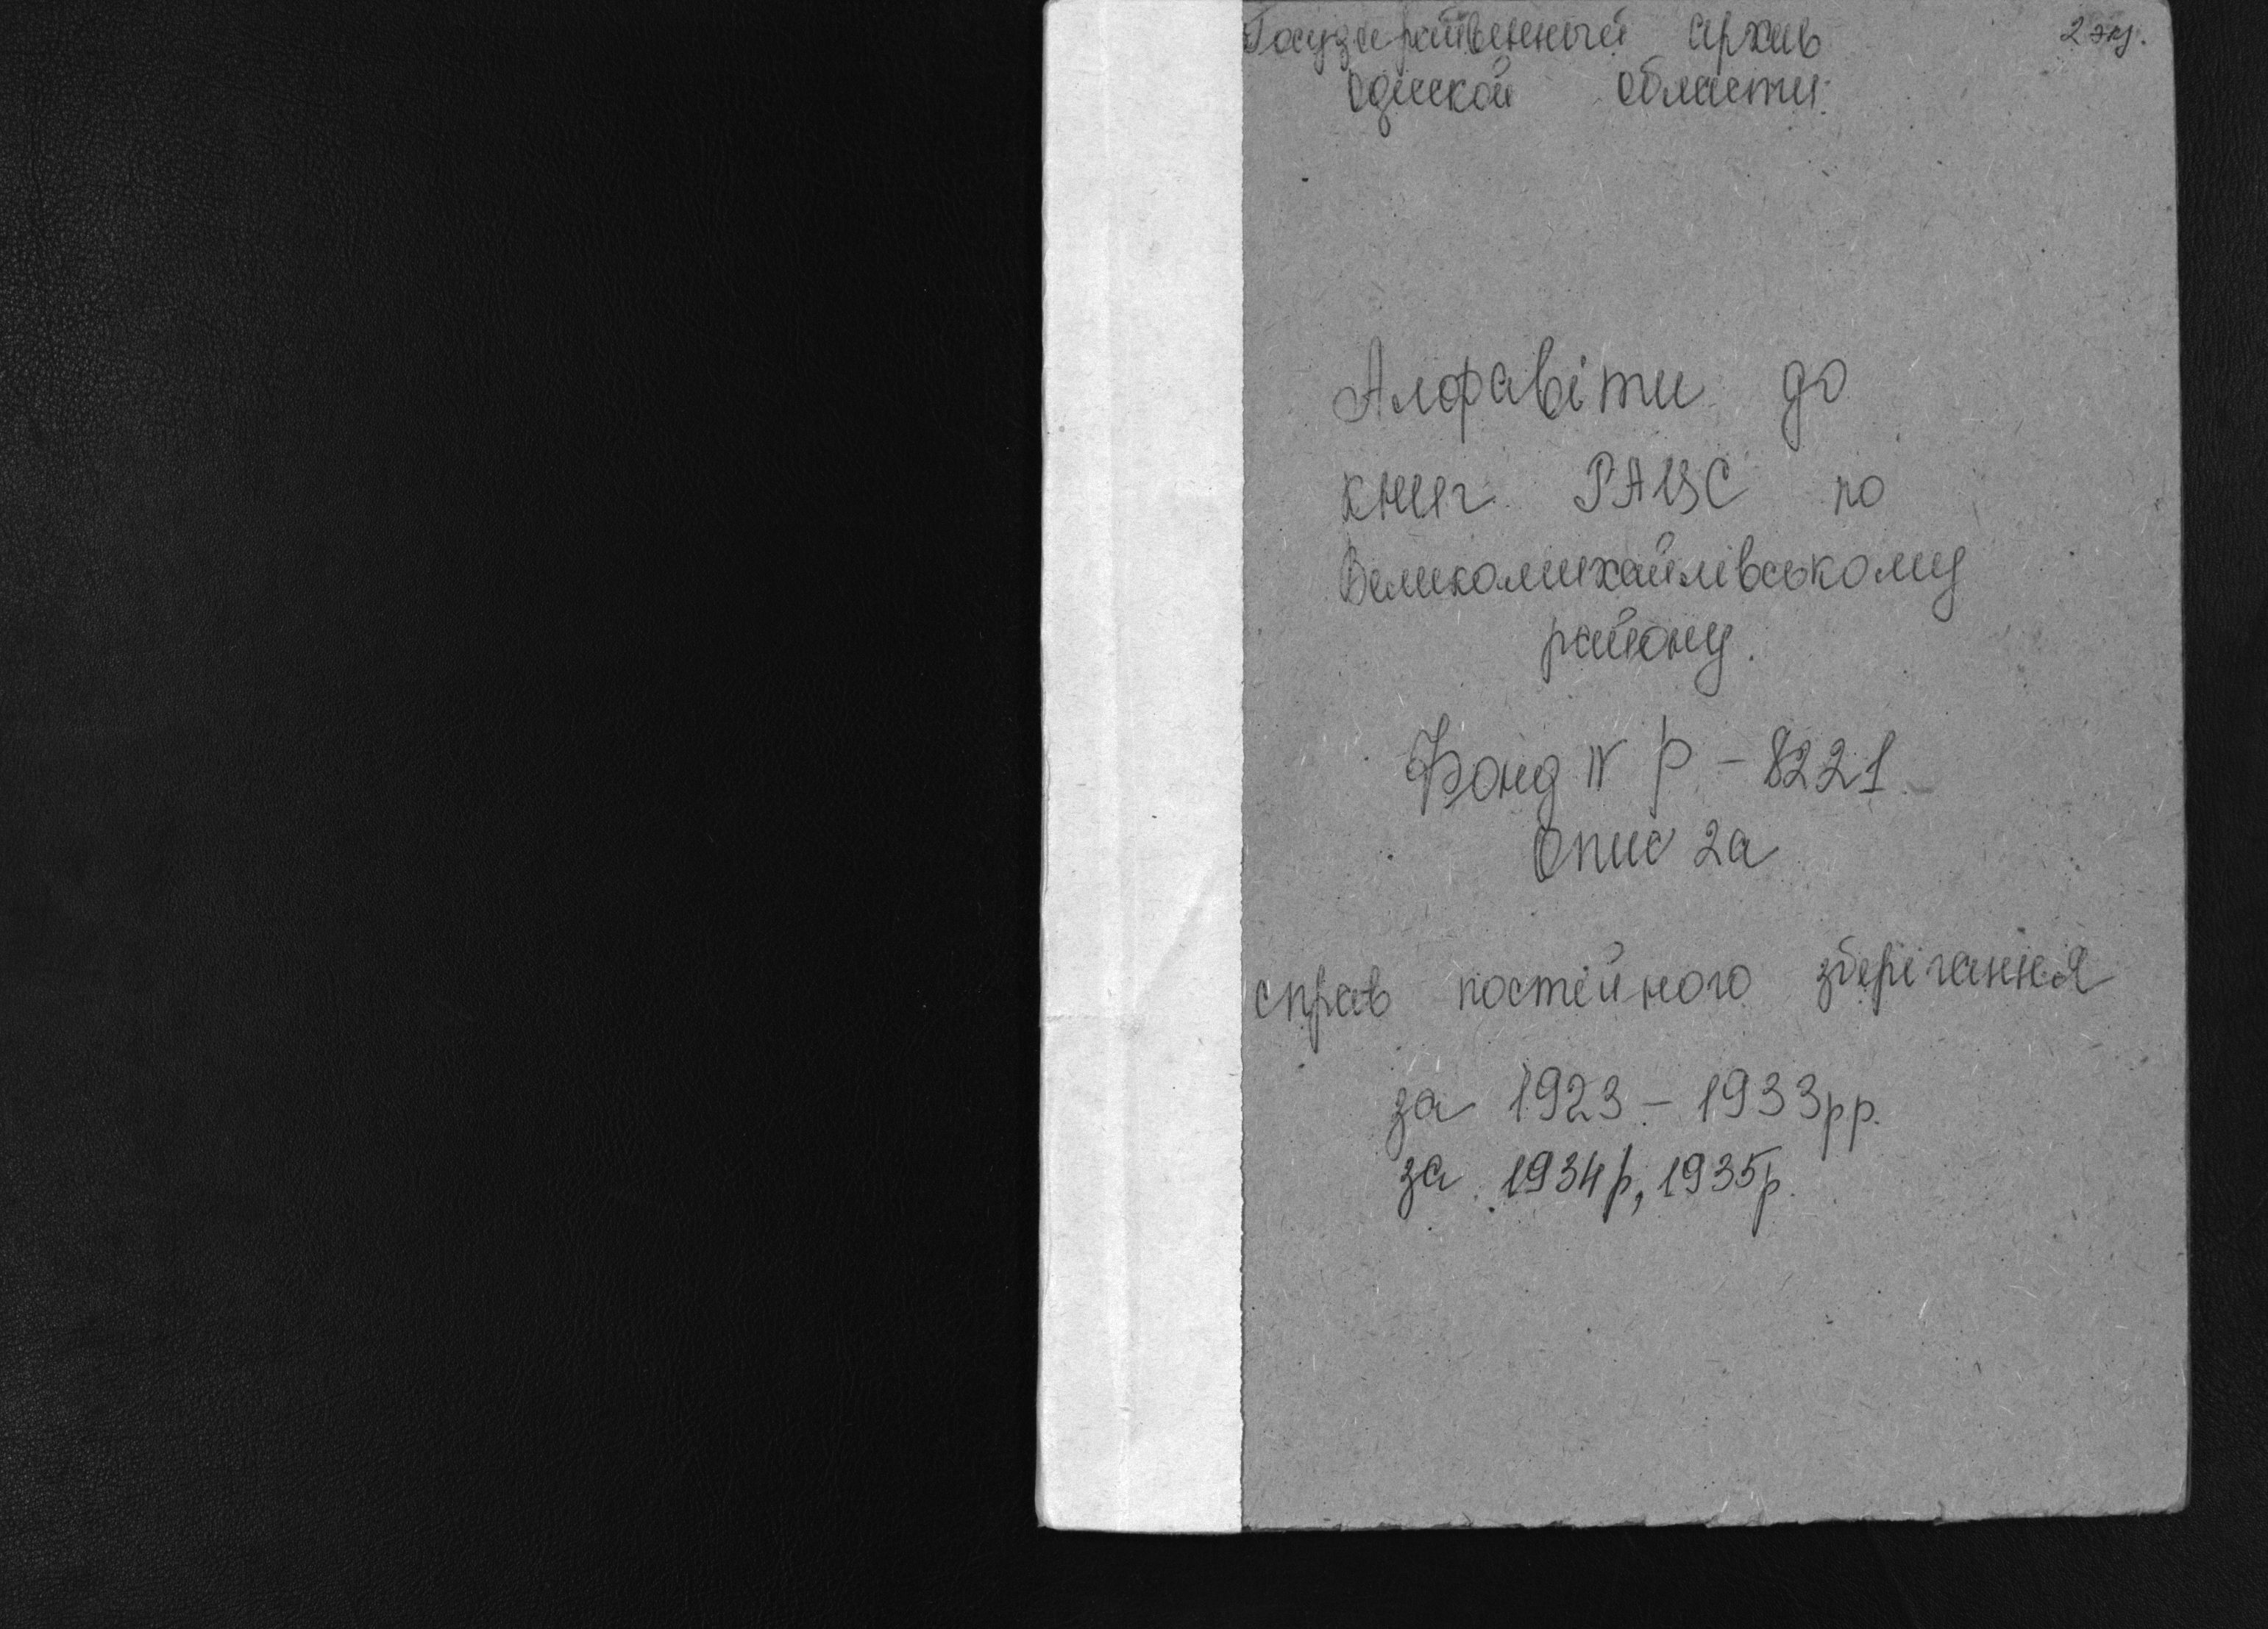 Государственный архив 2 экз.
Одесской области.
Алфавіти до
книг РАЦС по
Великомихайлівському
району.
Фонд № Р-8221
Опис 2а
справ постійного зберігання
за 1923-1933рр.
за 1934р, 1935р.